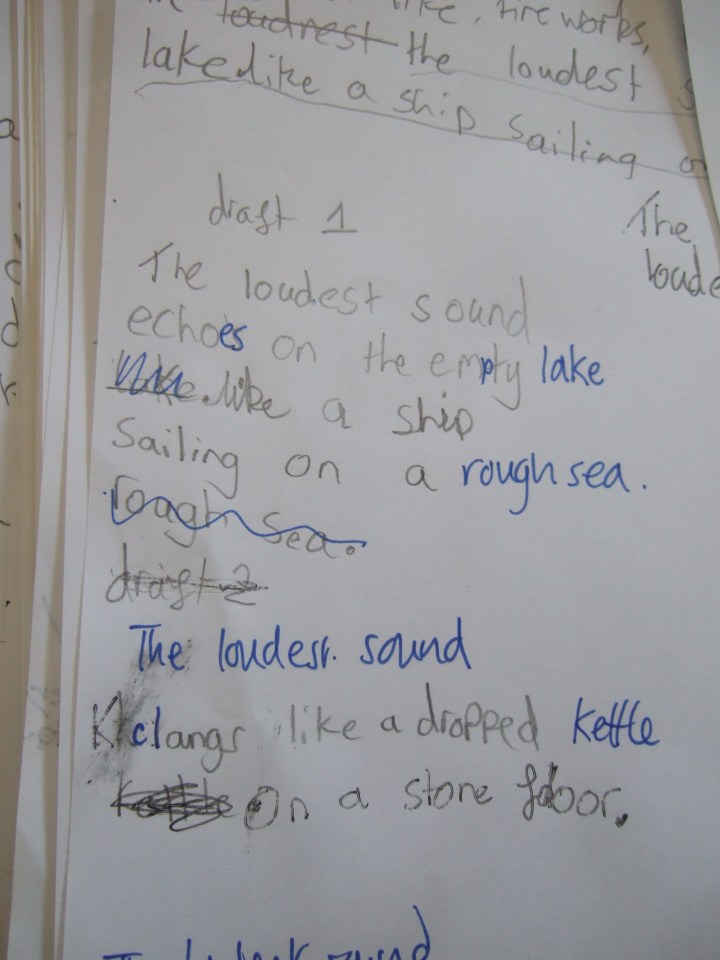 like, fireworks,
loudrest the loudest
lake like a ship sailing
draft 1
The
loude
The loudest sound
echoes on the empty lake
like a ship
Sailing on a rough sea.
rough Sea.
draft 2
The loudest sound
clangs like a dropped kettle
On a stone floor.